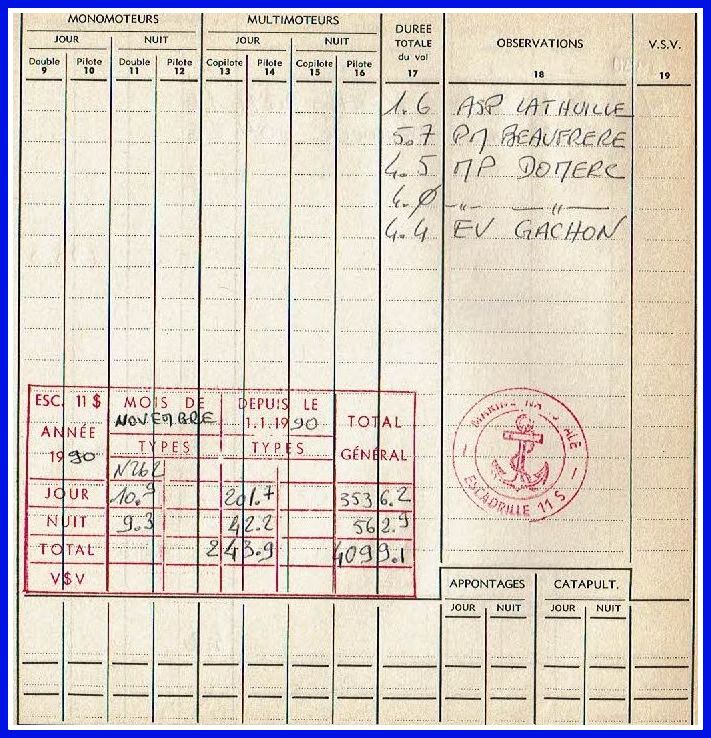 MONOMOTEURS MULTIMOTEURS DUREE TOTALE du vol OBSERVATIONS V.S.V.
JOUR NUIT JOUR NUIT
Double Pilote Double Pilote Copilote Pilote Copilote Pilote
9 10 11 12 13 14 15 16 17 18 19
1.6 ASP LATHUILLE
5.7 PM BEAUFRERE
4.5 MP DOMERC
4.0 —〃— —〃—
4.4 EV GACHON
ESC. 11 S MOIS DE NOVEMBRE DEPUIS LE 1.1.1990 TOTAL GÉNÉRAL
ANNÉE 1990 TYPES TYPES
N262
JOUR 10.9 201.7 3536.2
NUIT 9.3 42.2 562.9
TOTAL 243.9 4099.1
VSV
MARINE NATIONALE
ESCADRILLE 11 S
APPONTAGES CATAPULT.
JOUR NUIT JOUR NUIT